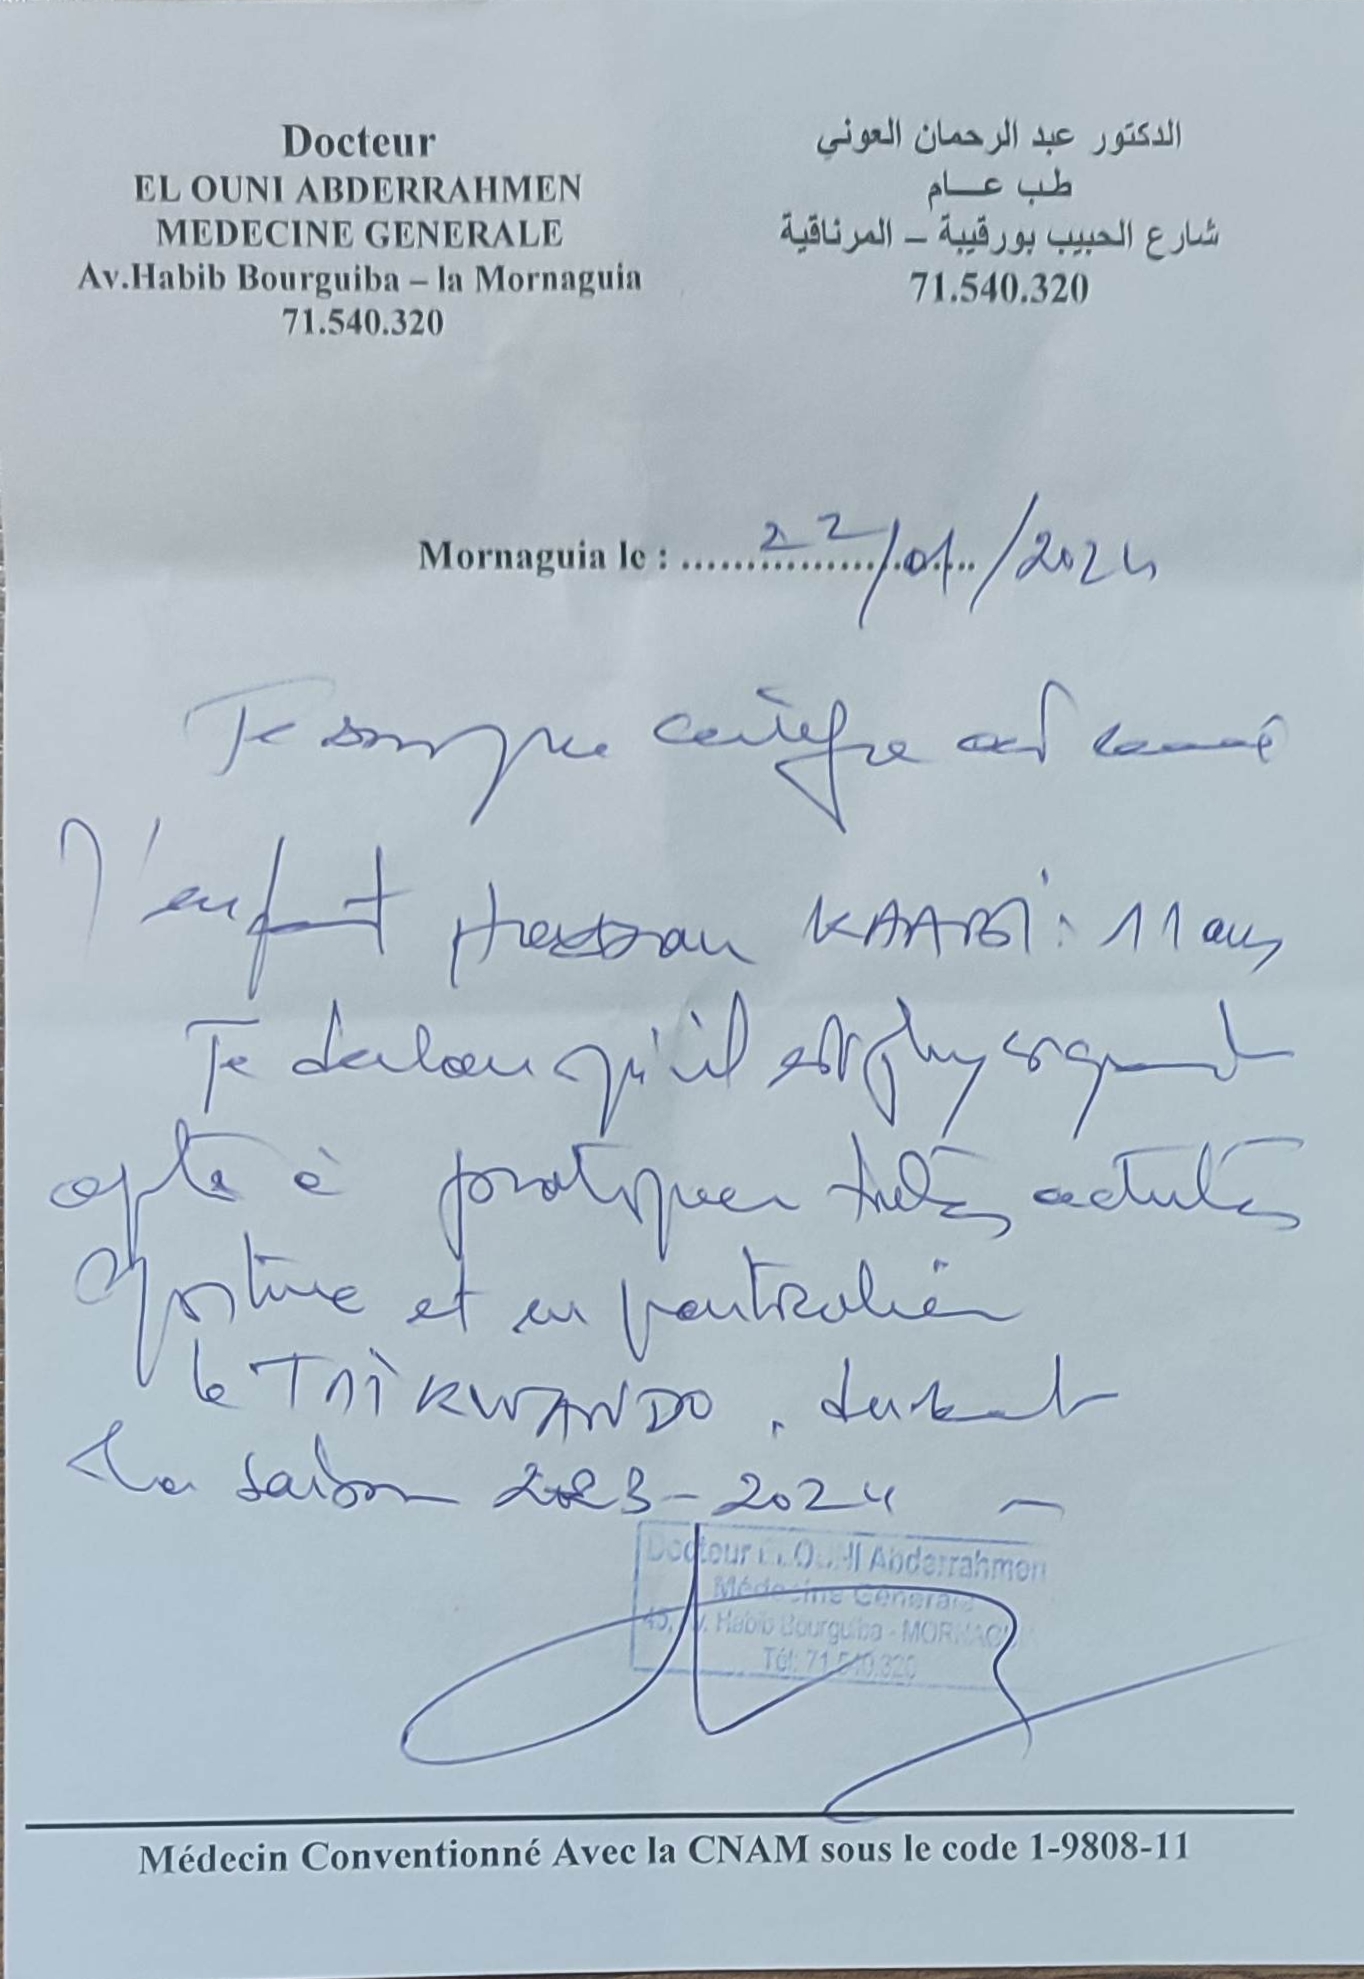 Docteur
EL OUNI ABDERRAHMEN
MEDECINE GENERALE
Av.Habib Bourguiba – la Mornaguia
71.540.320
الدكتور عبد الرحمان العوني
طب عــام
شارع الحبيب بورقيبة – المرناقية
71.540.320
Mornaguia le : 22/01/2024
Je certifie
l'enfant KAABI : 11 ans
Je qu'il est
apte à pratiquer activités
et en particulier
le TAIKWANDO, durant
la saison 2023-2024 -
Docteur Abderrahmen
Médecine Générale
45, Av. Habib Bourguiba - MORNAGUIA
Tél: 71.540.320
Médecin Conventionné Avec la CNAM sous le code 1-9808-11